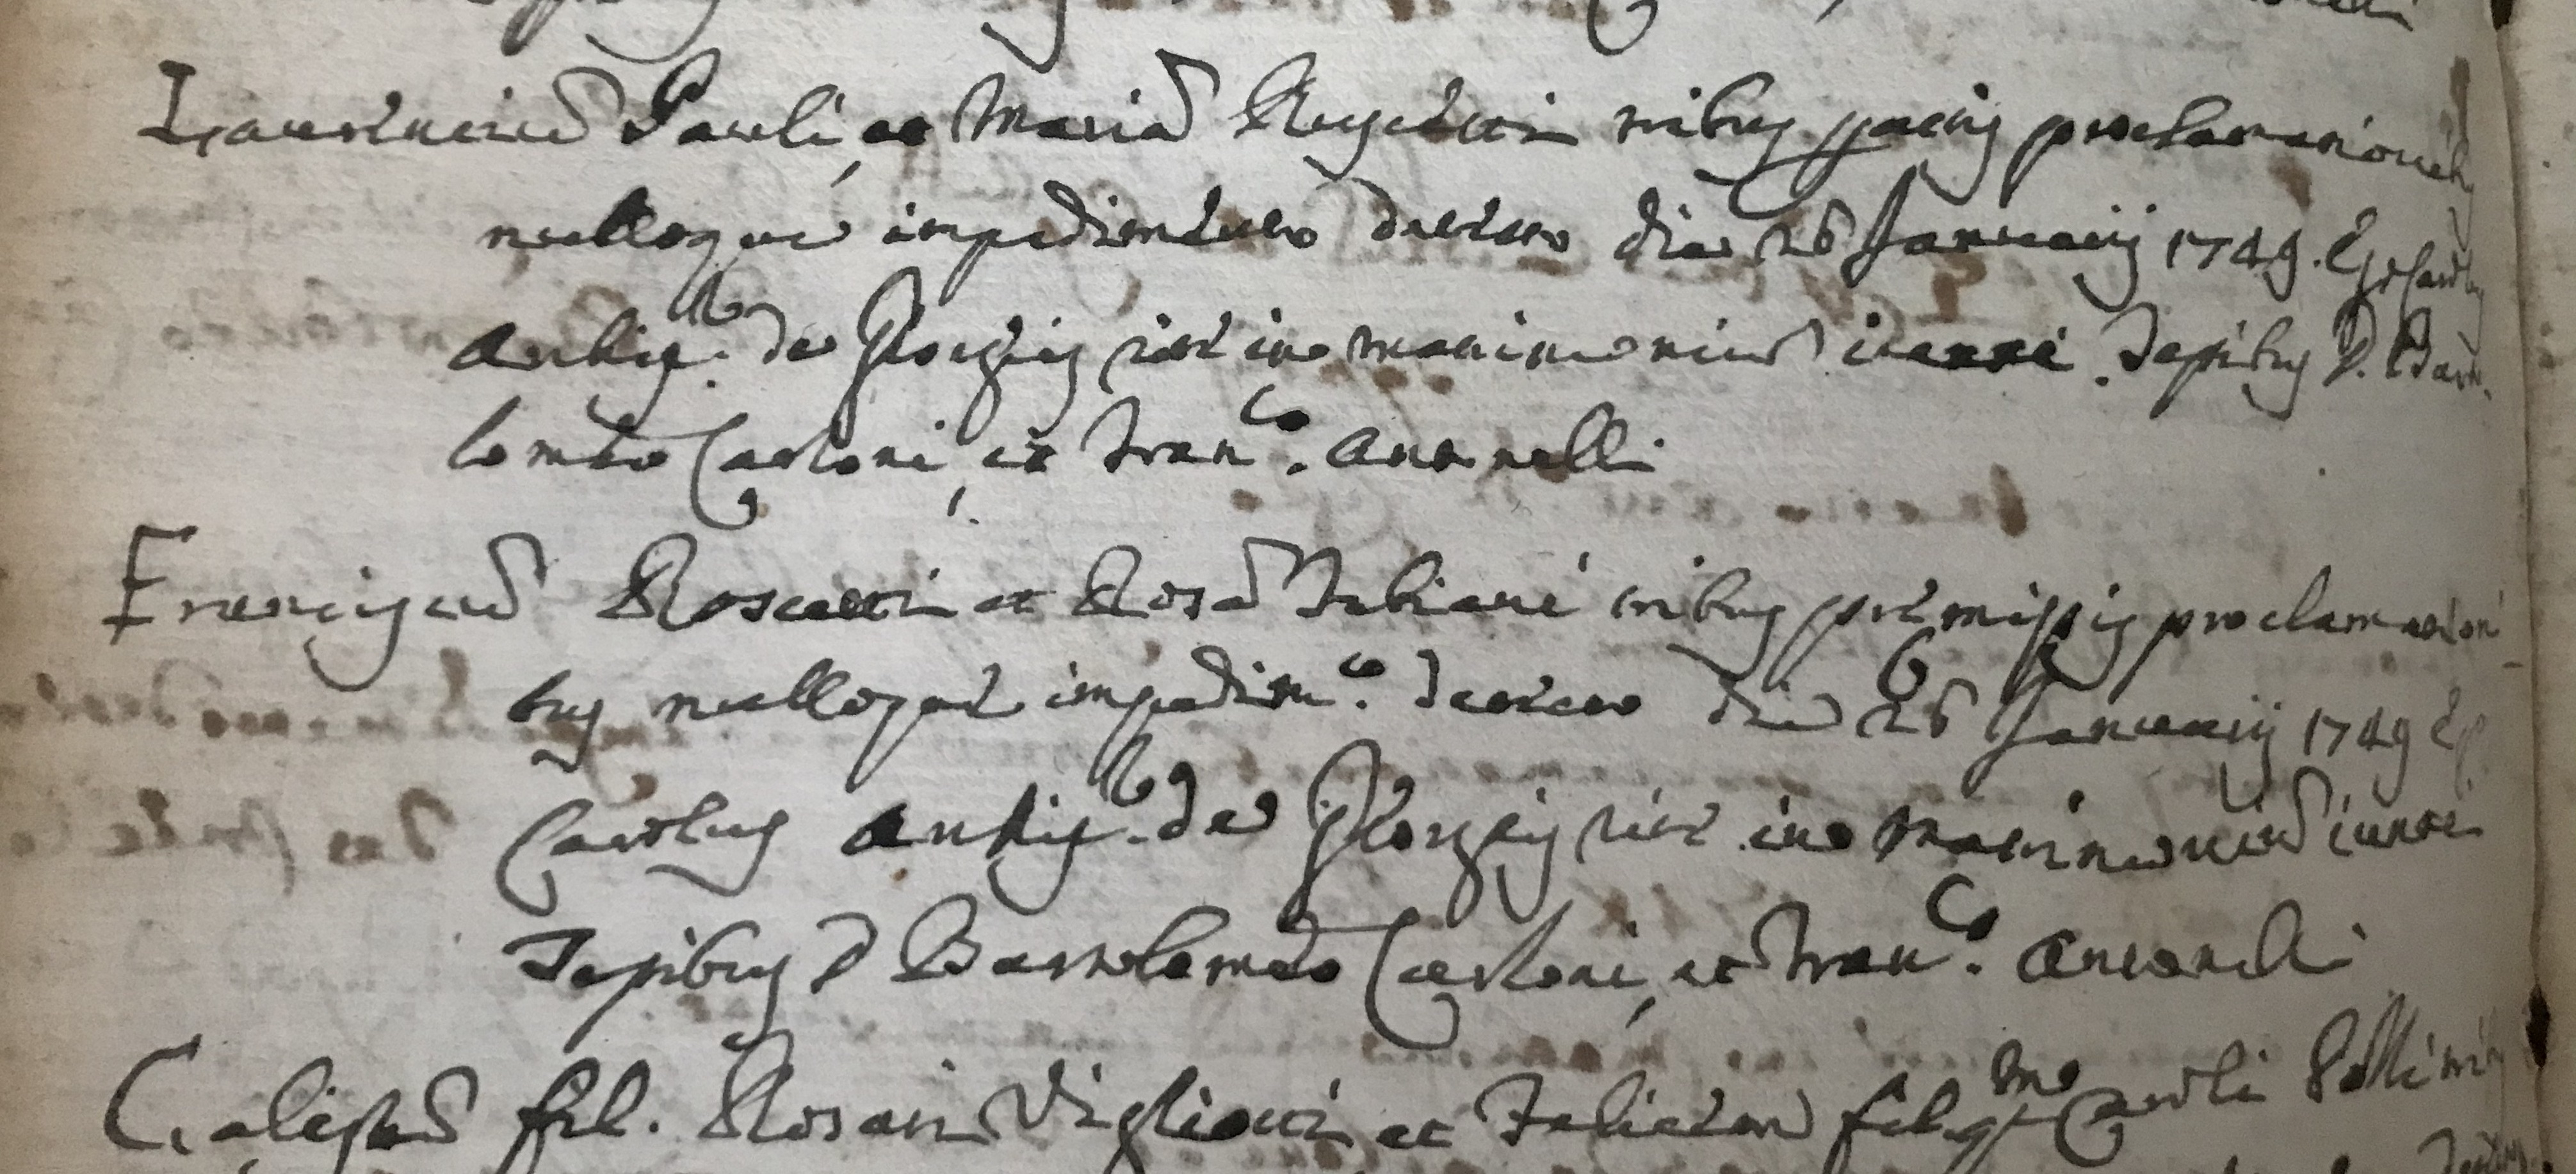 Laurentium Pauli, et Mariam tribus factis proclamationibus
nulloque impedimento detecto die 26 Januarij 1749. Ego Carolus
Archip. de Giorgijs rite in matrimonium iunxi. Testibus D. Barto
lomeo Carloni, et Fran.co Antonelli
Franciscum et Rosam Fabiani tribus premissis proclamationi
bus nulloque impedim.to detecto die 26 Januarij 1749 Ego
Carolus Archip. de Giorgijs rite in matrimonium iunxi
Testibus D Bartolomeo Carloni, et Fran.co Antonelli
Calistum fil. Rosati Vigliotti et fil. qm Caroli